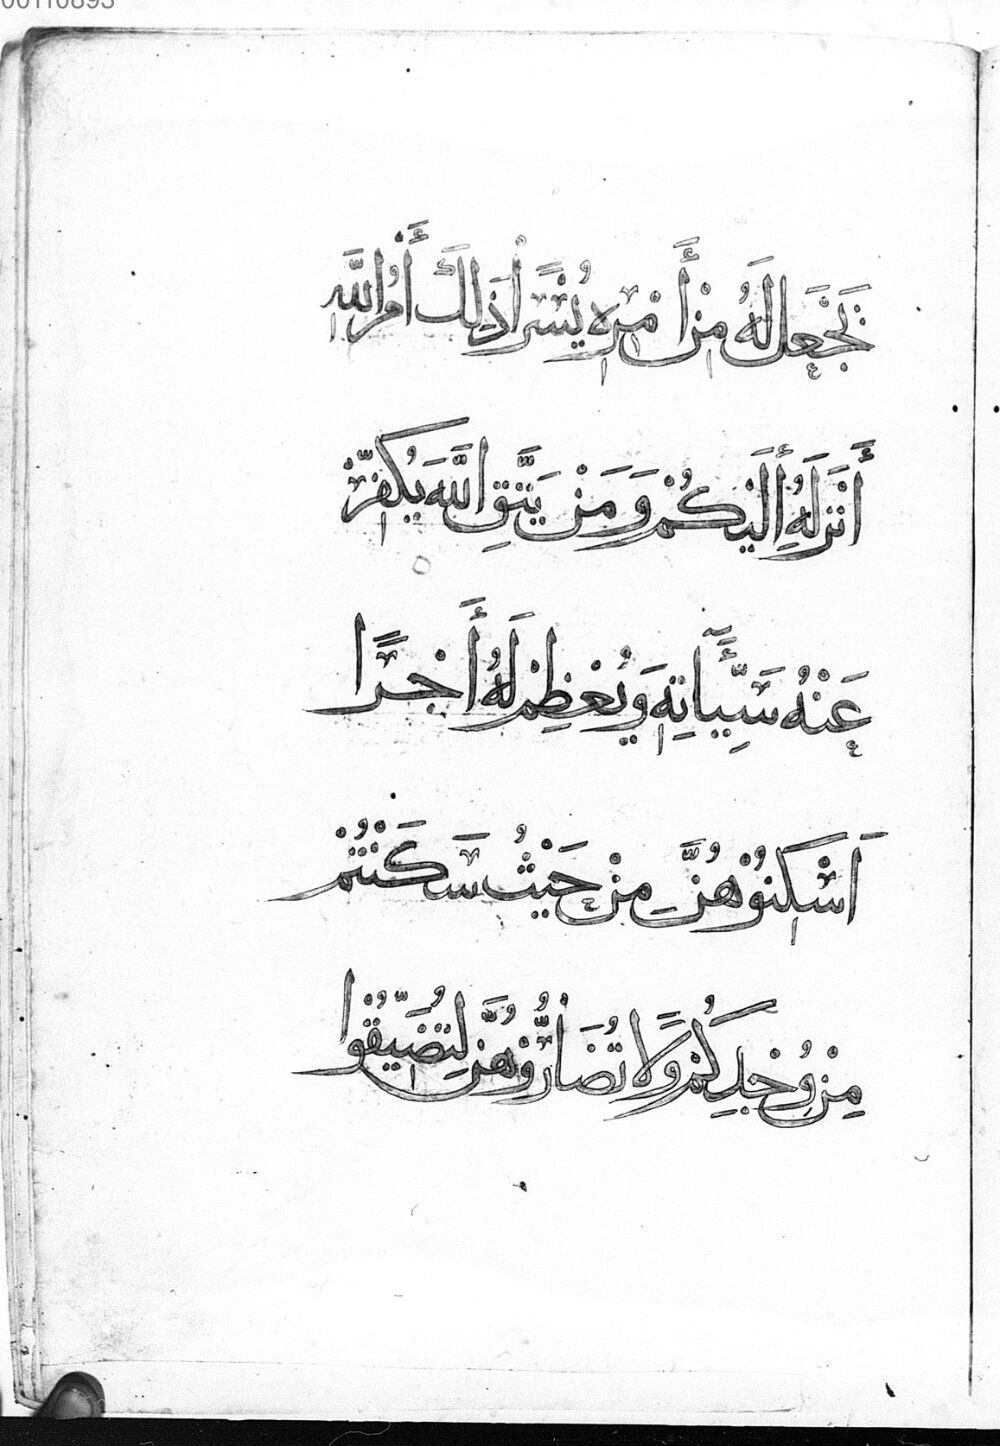 00110893
يَجْعَل لَهُ مِنْ أَمْرِهِ يُسْرًا ذَلِكَ أَمْرُ اللَّهِ
أَنْزَلَهُ إِلَيْكُمْ وَمَنْ يَتَّقِ اللَّهَ يُكَفِّرْ
عَنْهُ سَيِّئَاتِهِ وَيُعْظِمْ لَهُ أَجْرًا
اَسْكِنُوْهُنَّ مِنْ حَيْثُ سَكَنْتُمْ
مِنْ وُجْدِكُمْ وَلَا تُضَارُّوْهُنَّ لِتُضَيِّقُوا